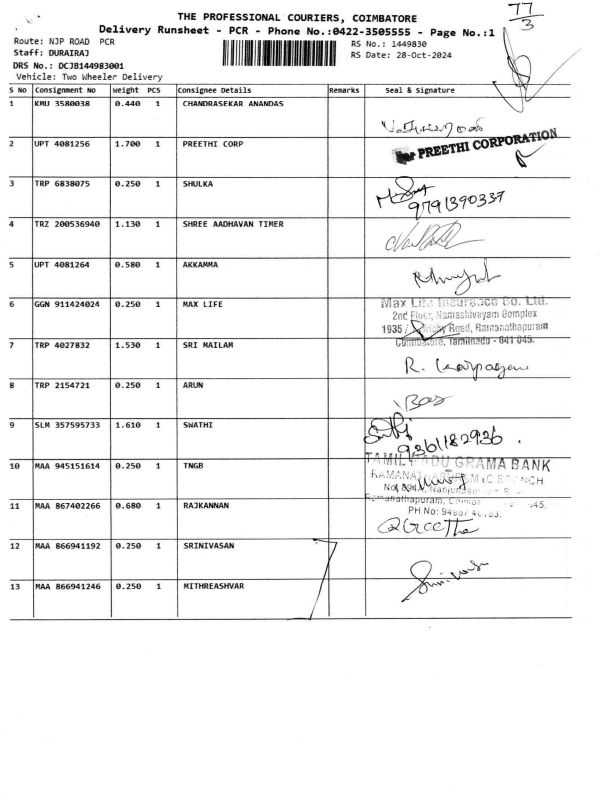 77
3
THE PROFESSIONAL COURIERS, COIMBATORE
Delivery Runsheet - PCR - Phone No.:0422-3505555 - Page No.:1
Route: NJP ROAD PCR
RS No.: 1449830
Staff: DURAIRAJ
RS Date: 28-Oct-2024
DRS No.: DCJB144983001
Vehicle: Two Wheeler Delivery
S No Consignment No Weight PCS Consignee Details Remarks Seal & Signature
1 KMU 3580038 0.440 1 CHANDRASEKAR ANANDAS
2 UPT 4081256 1.700 1 PREETHI CORP
For PREETHI CORPORATION
3 TRP 6838075 0.250 1 SHULKA
9791390337
4 TRZ 200536940 1.130 1 SHREE AADHAVAN TIMER
5 UPT 4081264 0.580 1 AKKAMMA
6 GGN 911424024 0.250 1 MAX LIFE
Max Life Insurance Co. Ltd.
2nd Floor, Namashivayam Complex
1935 / Trichy Road, Ramanathapuram
Coimbatore, Tamilnadu - 641 045.
7 TRP 4027832 1.530 1 SRI MAILAM
R. Karpagam
8 TRP 2154721 0.250 1 ARUN
9 SLM 357595733 1.610 1 SWATHI
9361182936.
10 MAA 945151614 0.250 1 TNGB
TAMIL NADU GRAMA BANK
11 MAA 867402266 0.680 1 RAJKANNAN
PH No:
12 MAA 866941192 0.250 1 SRINIVASAN
13 MAA 866941246 0.250 1 MITHREASHVAR